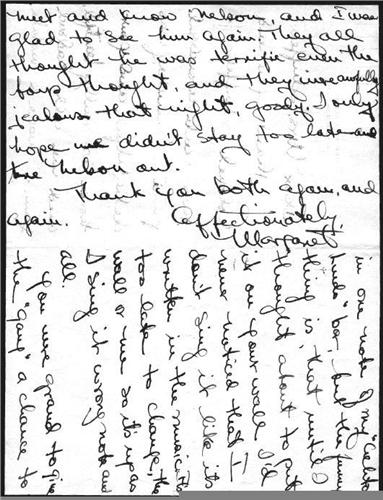 in one note of my "Celito
Lindo" bar, and the funny
thing is, that until I
thought about to put
it on your wall I'd
never noticed that I
don't sing it like its
written in the music.
too late to change the
wall or me so it's up as
I sing it wrong note and
all.
You were grand to give
the "gang" a chance to
meet and know Nelson, and I was
glad to see him again. They all
thought he was terrific even the
four thought, and they were awfully
jealous that night, goody. I only
hope we didn't stay too late and
tire Nelson out.
Thank you both again, and
again.
Affectionately,
Margaret